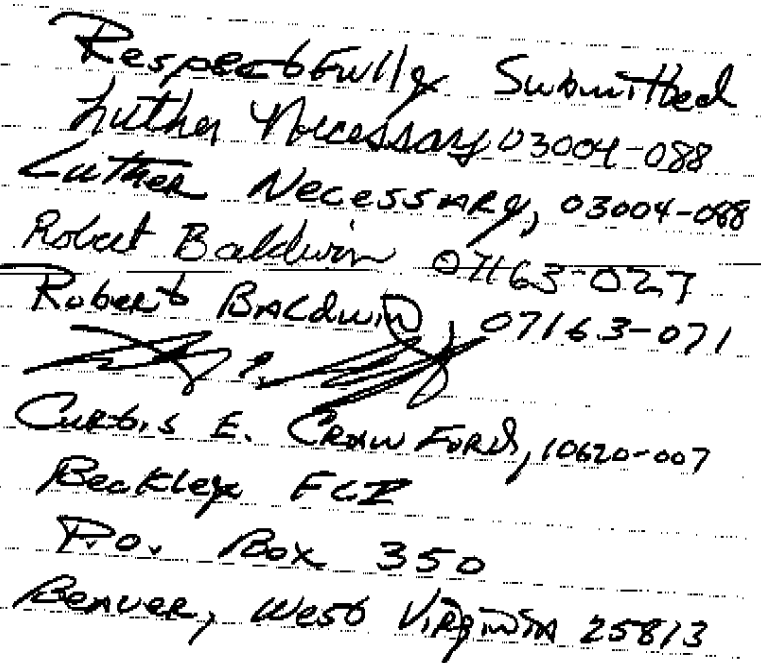 Respectfully Submitted
Luther Necessary 03004-088
Luther Necessary, 03004-088
Robert Baldwin 07163-027
Robert Baldwin, 07163-071
Curtis E. Crawford, 10620-007
Beckley FCI
P.O. Box 350
Beaver, West Virginia 25813